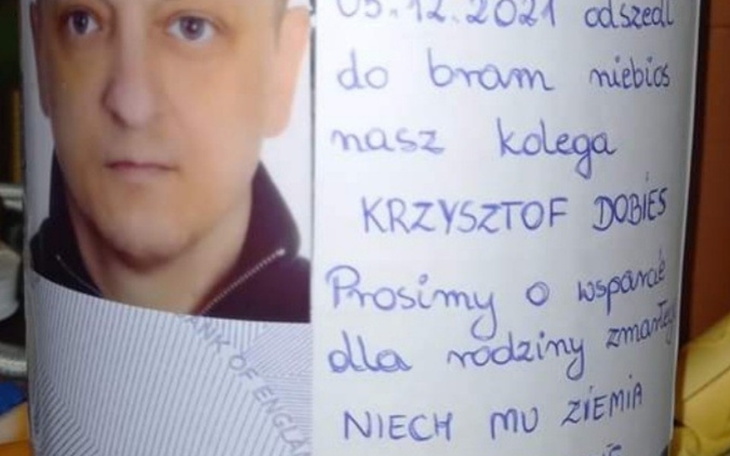 05.12.2021 odszedł
do bram niebios
nasz kolega
KRZYSZTOF DOBIES
Prosimy o wsparcie
dla rodziny
NIECH MU ZIEMIA
BANK OF ENGLA